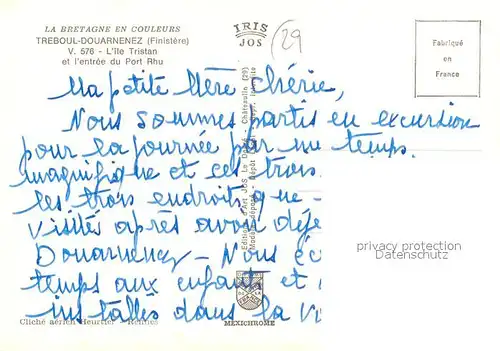 LA BRETAGNE EN COULEURS
TREBOUL-DOUARNENEZ (Finistère)
V. 576 - L'Ile Tristan
et l'entrée du Port Rhu
IRIS
JOS
29
Fabriqué
en
France
Ma petite Mère Chérie,
Nous sommes partis en excursion
pour la journée par un temps
magnifique et ces trois.
les trois endroits que
visités après avoir déje
Douarnenez - Nous
temps aux enfants et
installés dans la vi
Editions d'Art JOS Le Doaré - Châteaulin (29)
privacy protection
Datenschutz
Cliché aérien Heurtier - Rennes
MEXICHROME